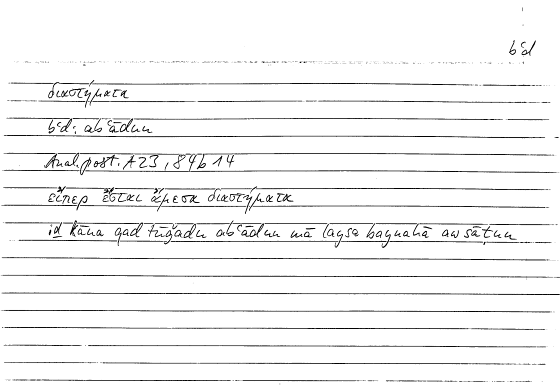 bʿd
διαστήματα
bʿd: abʿādun
Anal. post. A 23, 84b 14
εἴπερ ἔσται ἄμεσα διαστήματα
iḏ kāna qad tūǧadu abʿādun mā laysa baynahā awsāṭun